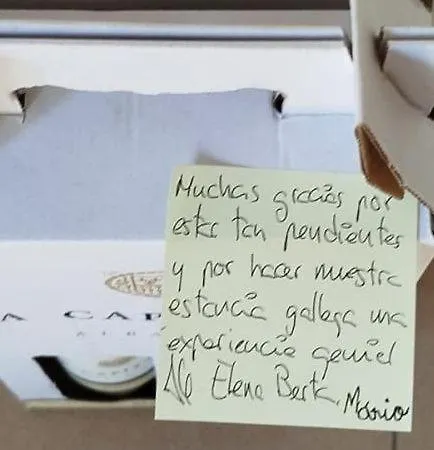 Muchas gracias por
estar tan pendientes
y por hacer nuestra
estancia gallega una
experiencia genial
Elena Berta Mario
A CAP